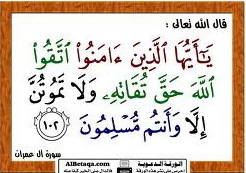 قال الله تعالى :
يَٰٓأَيُّهَا ٱلَّذِينَ ءَامَنُوا۟ ٱتَّقُوا۟
ٱللَّهَ حَقَّ تُقَاتِهِۦ وَلَا تَمُوتُنَّ
إِلَّا وَأَنتُم مُّسْلِمُونَ ١٠٢
سورة آل عمران
الورقة الدعوية
AlBetaqa.com